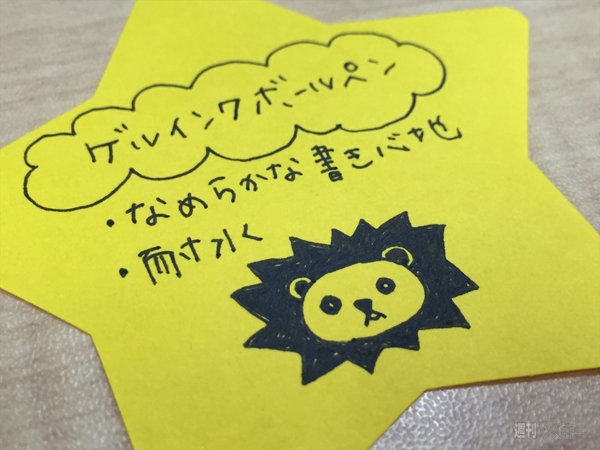 ゲルインクボールペン
・なめらかな書き心地
・耐水
週刊